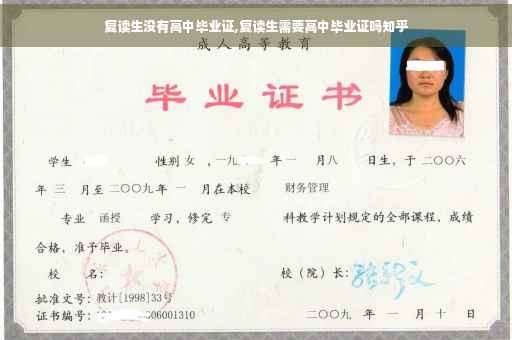 复读生没有高中毕业证,复读生需要高中毕业证吗知乎
成人高等教育
毕业证书
学生 性别 女 ,一九 年一 月八 日生，于二〇〇六
年 三 月至二〇〇九年 一 月在本校 财务管理
专业 函授 学习，修完 专 科教学计划规定的全部课程，成绩
合格，准予毕业。
校 名： 校（院）长：
批准文号：教计[1998]33号
证书编号： 06001310 二〇〇九 年 一 月 十 日